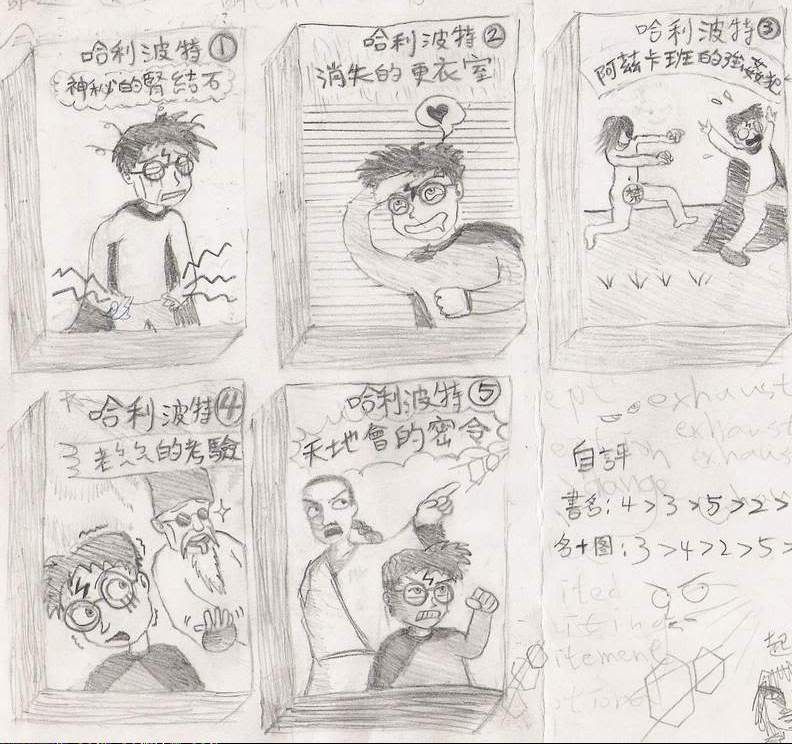 哈利波特①
神秘的腎結石
哈利波特②
消失的更衣室
哈利波特③
阿茲卡班的強姦犯
禁
哈利波特④
老爺爺的考驗
哈利波特⑤
天地會的密令
ept exhaust
exhaust
自評
書名:4>3>5>2>
名+圖:3>4>2>5>
ited
itement
起